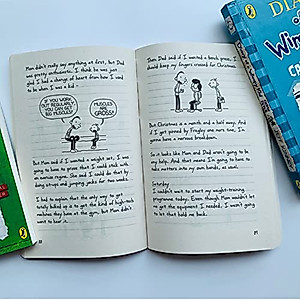 Mom didn't really say anything at first, but Dad
was pretty enthusiastic. I think he was just
glad I had a change of heart from how I used
to be when I was a kid -
IF YOU WORK
OUT REGULARLY,
YOU CAN GET
BIG MUSCLES!
MUSCLES
ARE
GROSS!
But Mom said if I wanted a weight set, I was
going to have to prove that I could stick with an
exercise regime. She said I could do that by
doing situps and jumping jacks for two weeks.
I had to explain that the only way to get
totally bulked up is to get the kind of high-tech
machines they have at the gym, but Mom didn't
want to hear it.
Then Dad said if I wanted a bench press, I
should keep my fingers crossed for Christmas.
But Christmas is a month and a half away. And
if I get pinned by Fregley one more time, I'm
gonna have a nervous breakdown.
So it looks like Mom and Dad aren't going to be
any help. And that means I'm going to have to
take matters into my own hands, as usual.
Saturday
I couldn't wait to start my weight-training
programme today. Even though Mom wouldn't let
me get the equipment I needed, I wasn't going
to let that hold me back.
DIARY
of a
Wimpy